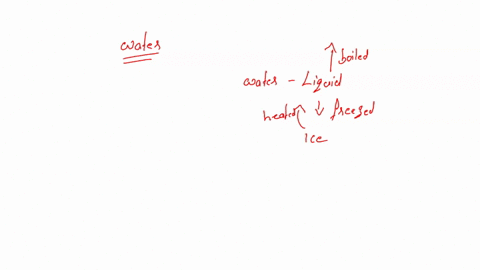 water
boiled
water - Liquid
heated freezed
ice